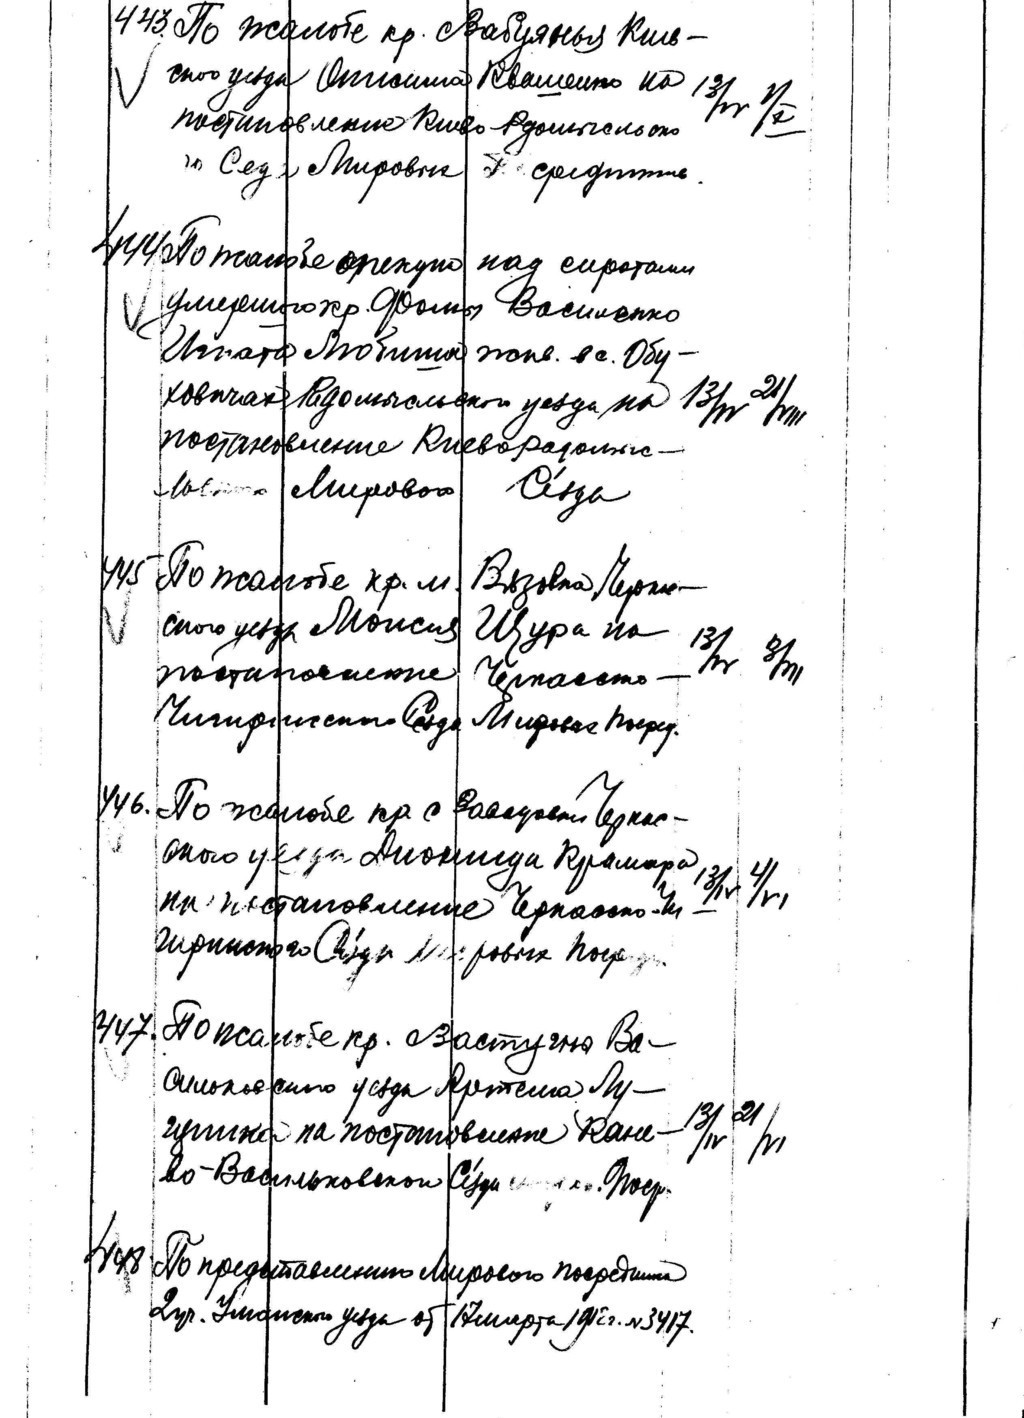 443. По жалобе кр. Забуянья Киев-
ского уезда Онисима Квашенко на 13/IV 7/X
постановление Киево-Радомысльско
го Сезда Мировых Посредников.
444. По жалобе опекуна над сиротами
умершого кр. Фомы Василенко
Игната жив. в с. Обу-
ховичах Радомысльского уезда на 13/IV 21/VIII
постановление Киево Радомыс-
льского Мирового Сезда
445 По жалобе кр. м. Вязовка Черкас-
ского уезда Моисея Щура на
постановление Черкасско- 13/IV
Чигиринского Сезда Мировых Посред.
446. По жалобе кр с Черкас-
ского уезда Дионисия Крамара
на постановление Черкасско-Чи 13/IV 4/VI
гиринского Сезда Мировых Посред.
447. По жалобе кр. Застугна Ва-
сильковского уезда Артема Лу-
на постановление Кане- 13/IV 21/VI
во-Васильковского Сезда Поср.
448 По представлению Мирового Посредника
2 уч. Уманского уезда от 17 марта N 3417.